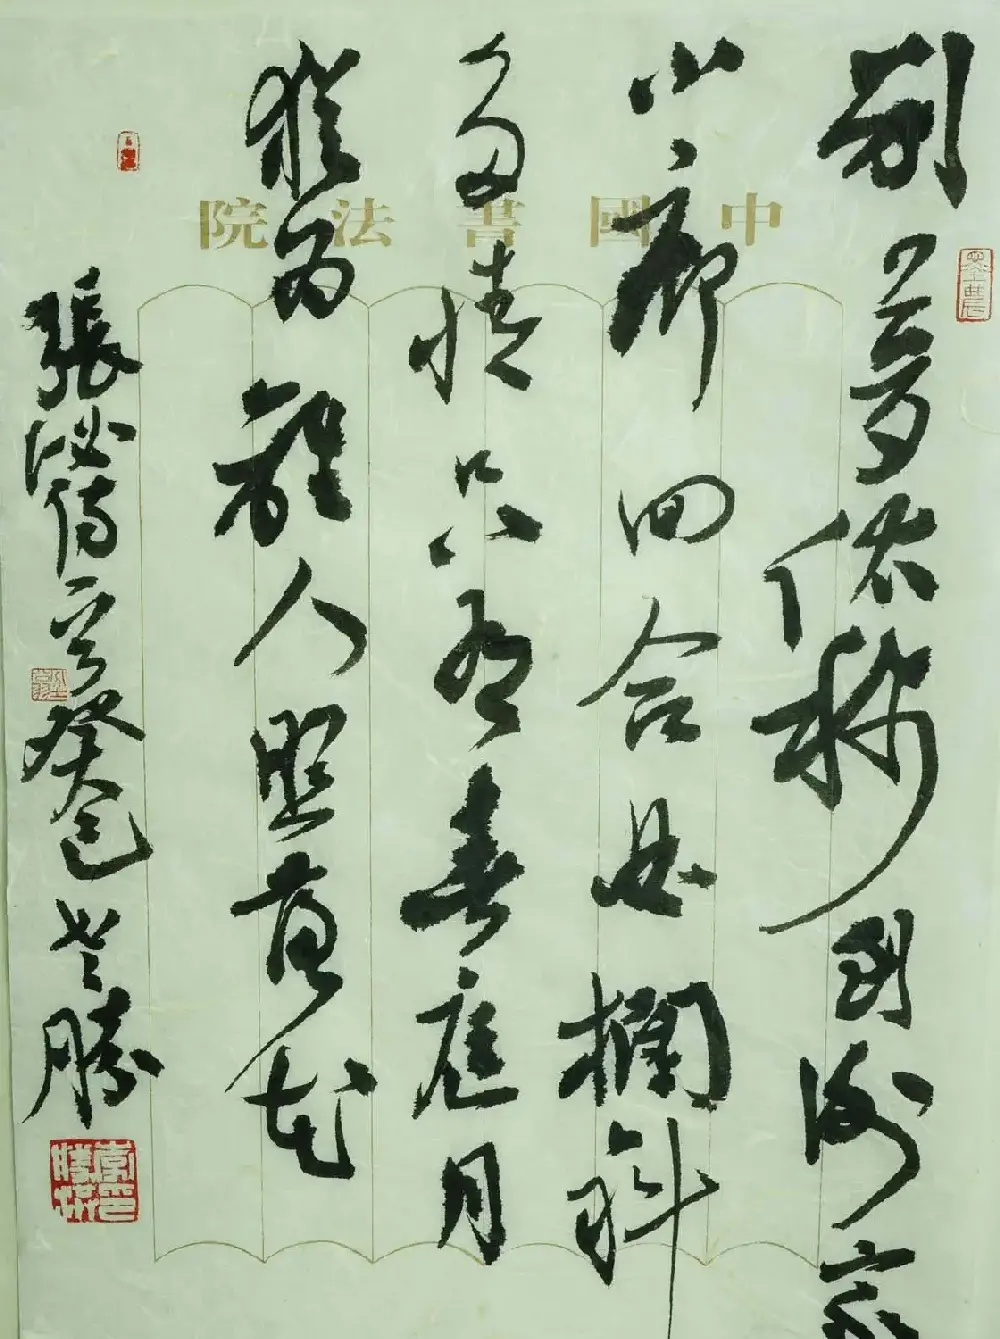 中國書法院
别夢依到谢家
小廊回合曲欄斜
多情只有春庭月
猶为離人照落花
張泌诗癸巳勝